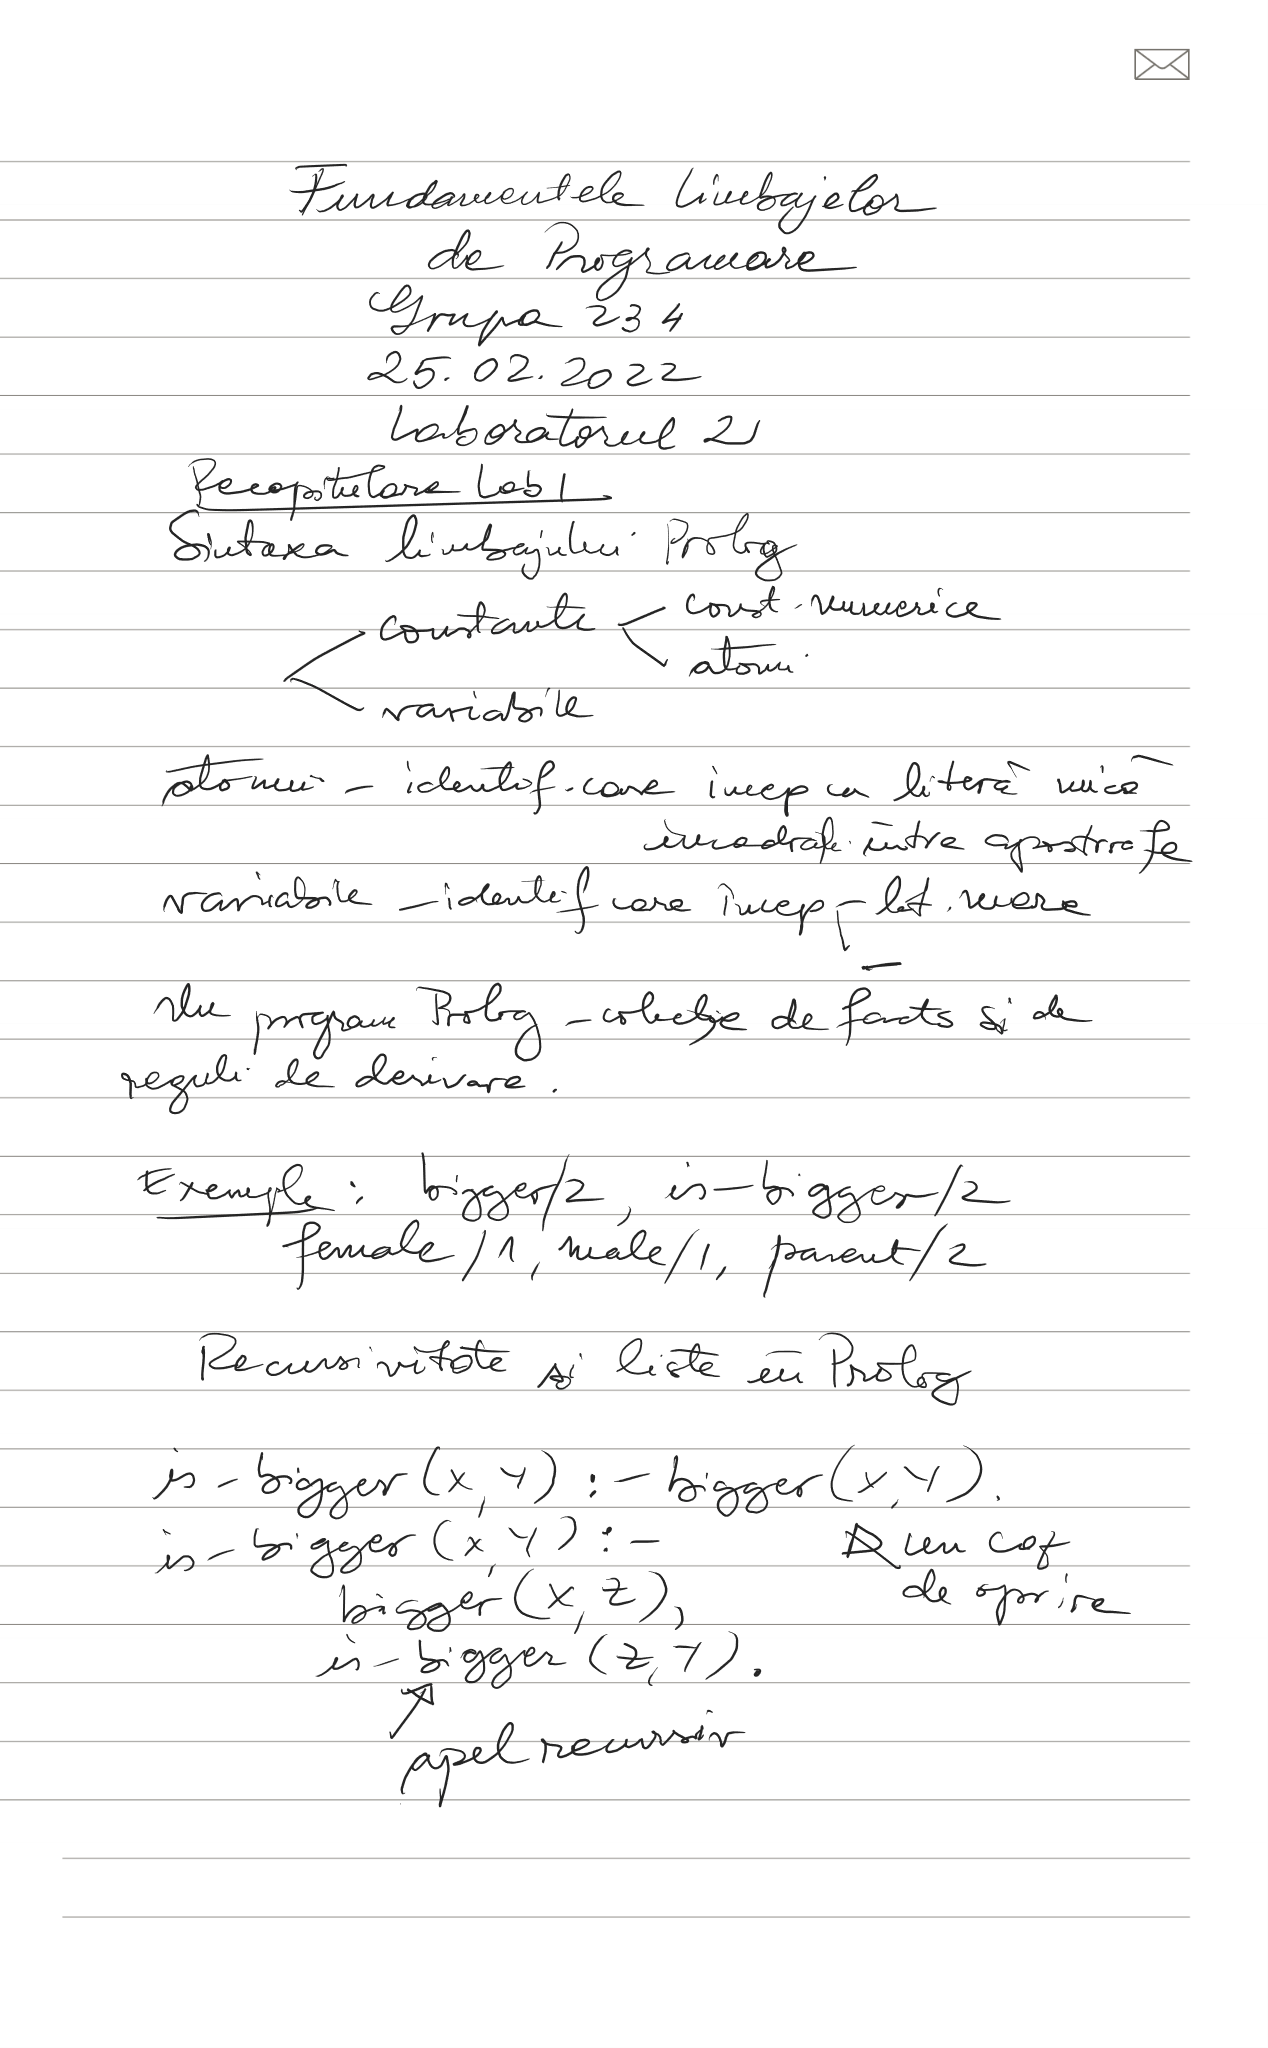 Fundamentele Limbajelor
de Programare
Grupa 234
25.02.2022
Laboratorul 2
Recapitulare Lab 1
Sintaxa limbajului Prolog
constante const. numerice
atomi
variabile
atomii – identif. care încep cu literă mică
încadrați între apostrofe
variabile – identif care încep lit. mare
_
Un program Prolog – colecție de facts și de
reguli de derivare.
Exemple: bigger/2, is_bigger/2
female/1, male/1, parent/2
Recursivitate și liste în Prolog
is_bigger(X,Y) :- bigger(X,Y).
is_bigger(X,Y) :-
un caz
de oprire
bigger(X,Z),
is_bigger(Z,Y).
apel recursiv